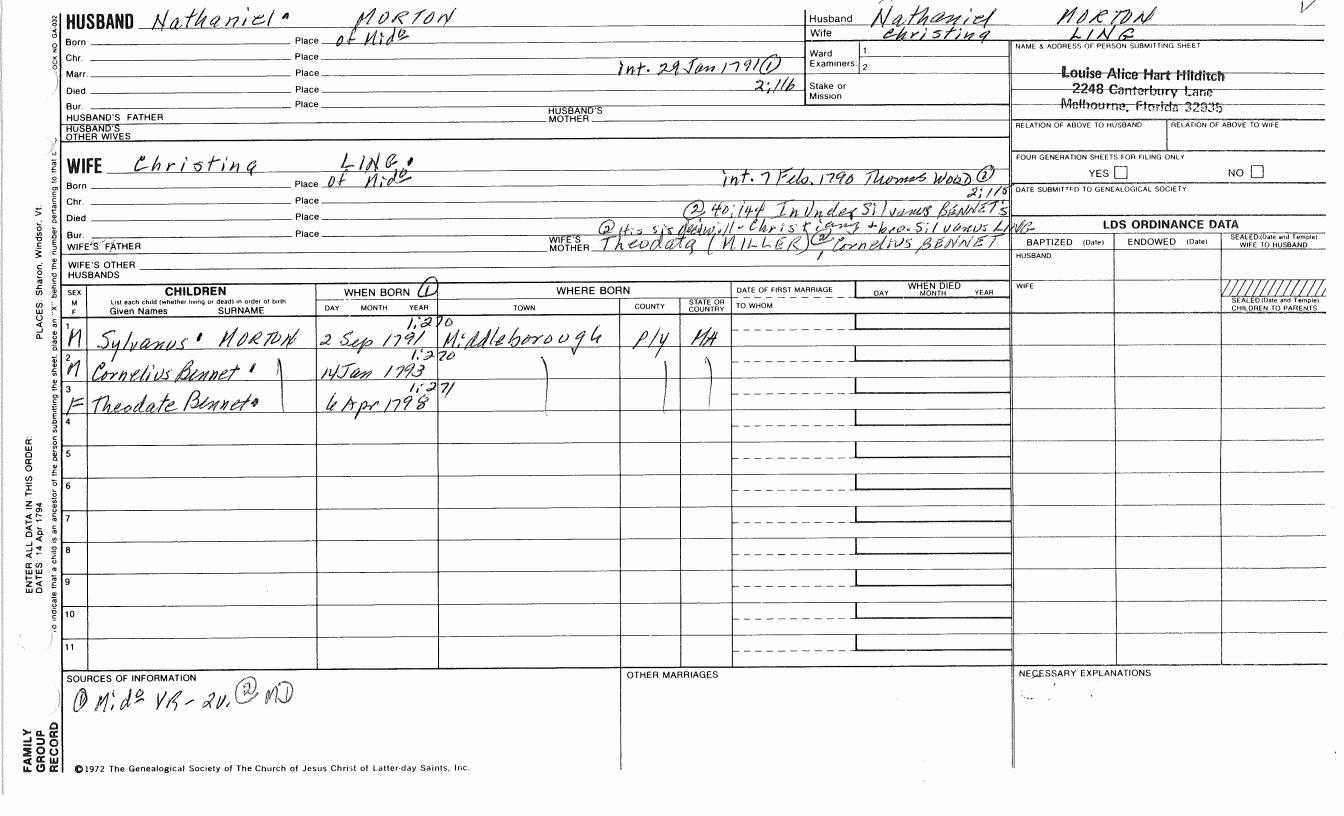 HUSBAND Nathaniel MORTON
Born Place of Mido
Chr. Place
Marr. Place int. 29 Jan 1791 ①
Died Place 2:116
Bur. Place
HUSBAND'S FATHER HUSBAND'S MOTHER
HUSBAND'S OTHER WIVES
Husband Nathaniel MORTON
Wife Christina LING
Ward Examiners: 1. 2.
Stake or Mission
NAME & ADDRESS OF PERSON SUBMITTING SHEET
Louise Alice Hart Hilditch
2248 Canterbury Lane
Melbourne, Florida 32935
RELATION OF ABOVE TO HUSBAND RELATION OF ABOVE TO WIFE
FOUR GENERATION SHEETS FOR FILING ONLY
YES NO
DATE SUBMITTED TO GENEALOGICAL SOCIETY
WIFE Christina LING
Born Place of Mido int. 7 Feb. 1790 Thomas WOOD ①
Chr. Place 2:115
Died Place ② 40:144 In Under Silvanus BENNET'S
Bur. Place ② His sis will - Christiany + bro. Silvanus LING
WIFE'S FATHER WIFE'S MOTHER Theodata (MILLER) ② Cornelius BENNET
WIFE'S OTHER HUSBANDS
LDS ORDINANCE DATA
BAPTIZED (Date) ENDOWED (Date) SEALED (Date and Temple) WIFE TO HUSBAND
HUSBAND
WIFE
SEALED (Date and Temple) CHILDREN TO PARENTS
SEX M F CHILDREN WHEN BORN ① WHERE BORN DATE OF FIRST MARRIAGE WHEN DIED
List each child (whether living or dead) in order of birth
Given Names SURNAME DAY MONTH YEAR TOWN COUNTY STATE OR COUNTRY TO WHOM DAY MONTH YEAR
1:270
1 M Sylvanus MORTON 2 Sep 1791 Middleborough Ply MA
1:270
2 M Cornelius Bennet 14 Jan 1793
1:271
3 F Theodate Bennet 6 Apr 1798
4
5
6
7
8
9
10
11
SOURCES OF INFORMATION
① Mido VR - 2v. ② MD
OTHER MARRIAGES
NECESSARY EXPLANATIONS
©1972 The Genealogical Society of The Church of Jesus Christ of Latter-day Saints, Inc.
FAMILY GROUP RECORD
ENTER ALL DATA IN THIS ORDER:
DATES: 14 Apr 1794
PLACES: Sharon, Windsor, Vt.
to indicate that a child is an ancestor of the person submitting the sheet, place an "X" behind the number pertaining to that
OCK NO. GA-032